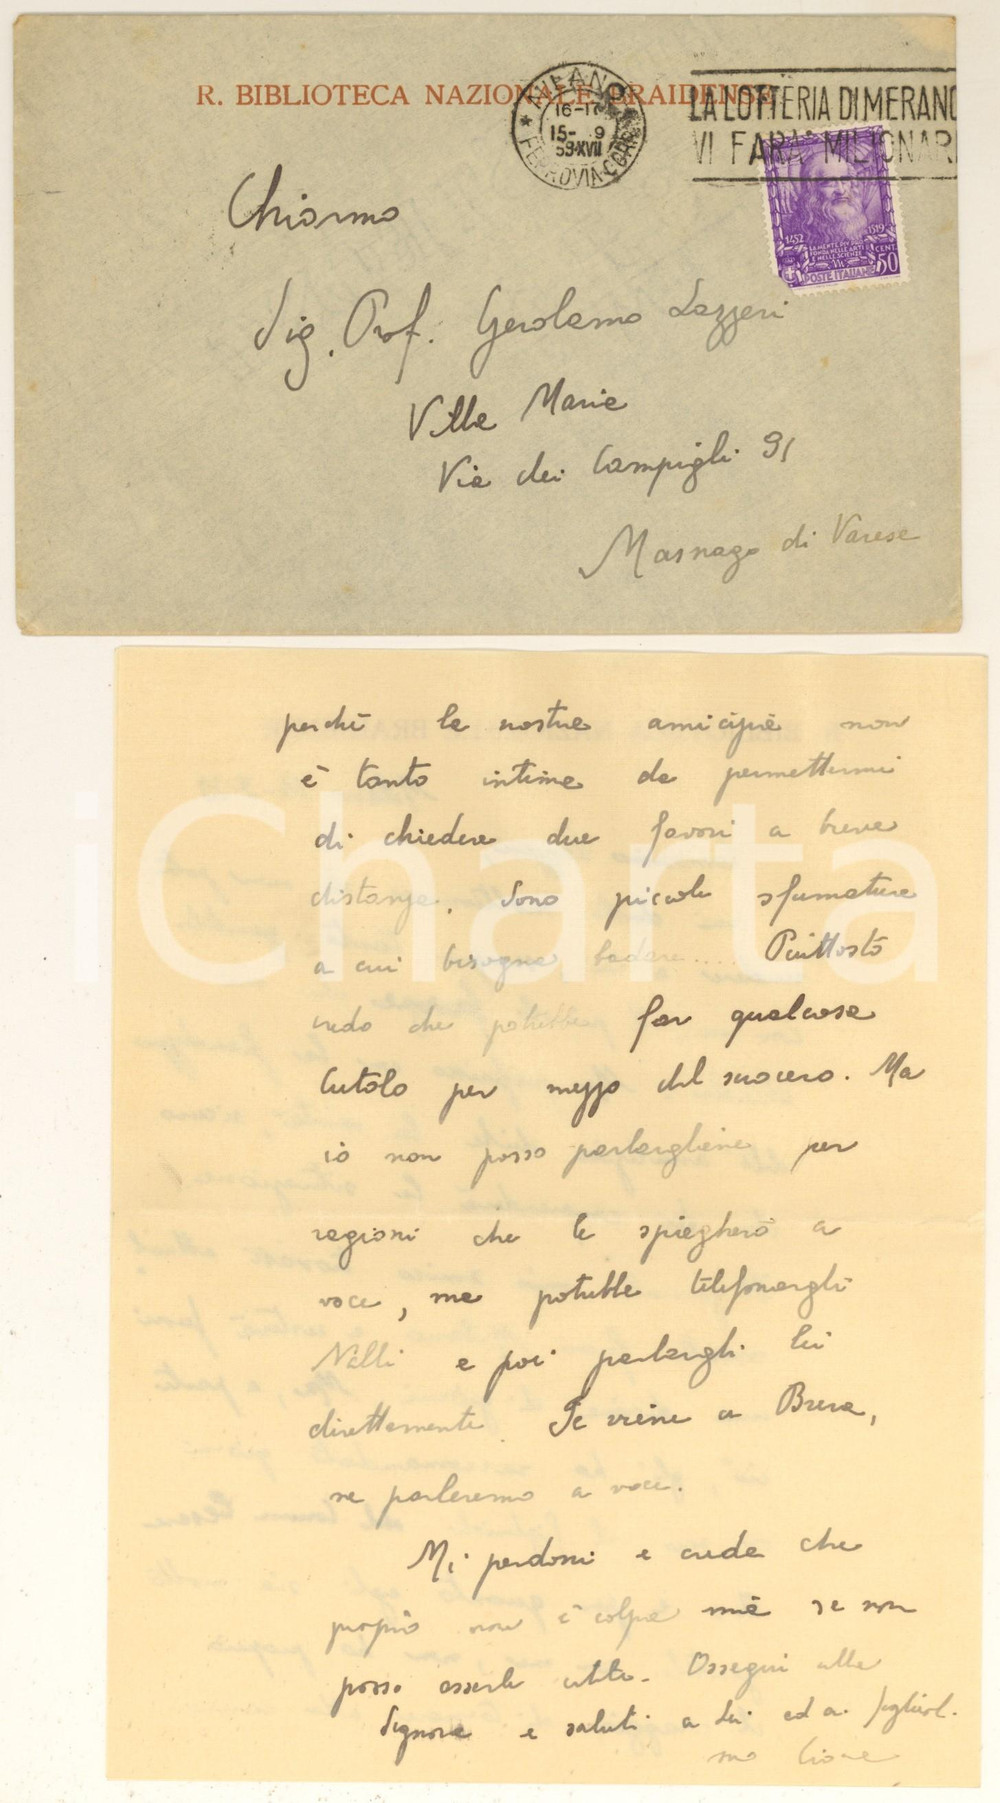 R. BIBLIOTECA NAZIONALE BRAIDENSE
MILANO
16-17
15- 9
39·XVII
FERROVIA·CORR
LA LOTTERIA DI MERANO
VI FARA' MILIONARI
1452 1519
LA MENTE DIVINO
FONDA NELLE ARTI
E NELLE SCIENZE
CENT. 50
POSTE ITALIANE
Chiar.mo
Sig. Prof. Gerolamo Lazzeri
Villa Maria
Via dei Campigli 91
Masnago di Varese
perchè la nostra amicizia non
è tanto intima da permettermi
di chiedere due favori a breve
distanza. Sono piccole sfumature
a cui bisogna badare.... Piuttosto
credo che potrebbe far qualcosa
Cutolo per mezzo del suocero. Ma
io non posso parlargliene per
ragioni che le spiegherò a
voce, ma potrebbe telefonargli
Nelli e poi parlargli lei
direttamente. Se viene a Brera,
ne parleremo a voce.
Mi perdoni e creda che
proprio non è colpa mia se non
posso esserle utile. Ossequi alla
Signora e saluti a Lei ed ai figlioli.
suo
iCharta